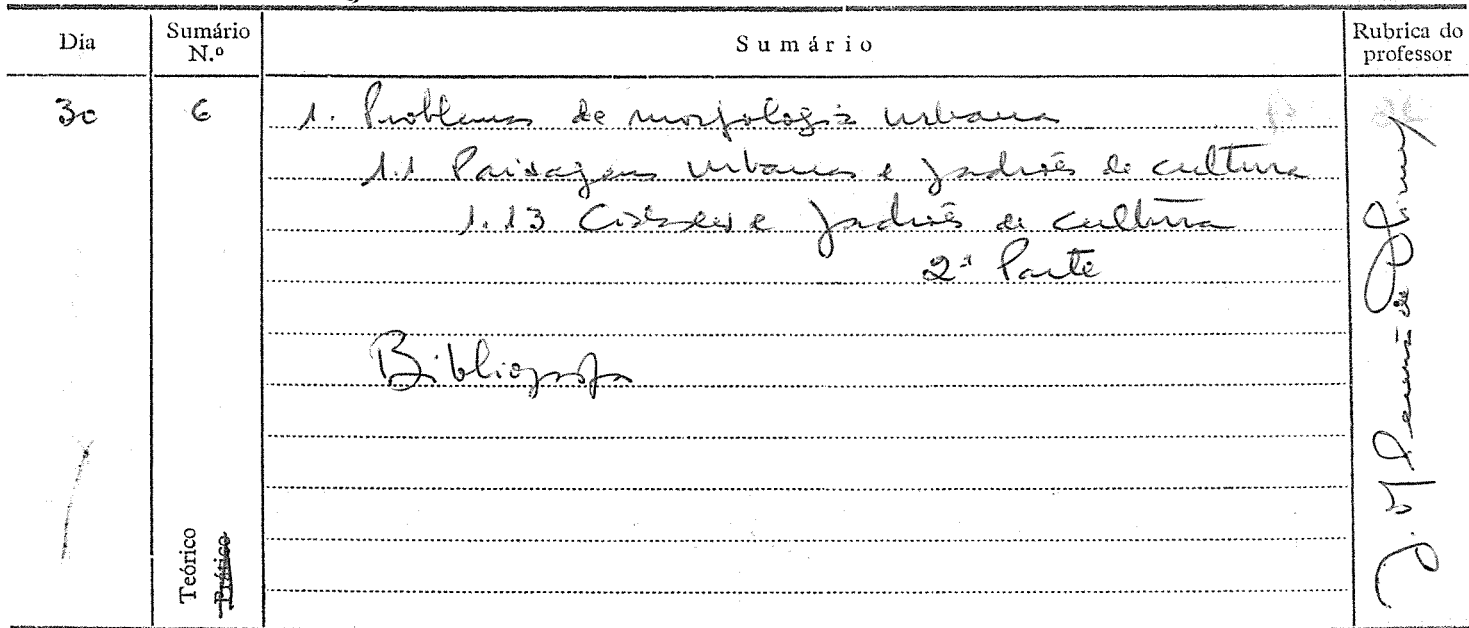 Dia
Sumário N.º
Sumário
Rubrica do professor
30
6
1. Problemas de morfologia urbana
1.1 Paisagens urbanas e padrões de cultura
1.13 Cidades e padrões de cultura
2ª Parte
Bibliografia
Teórico
Prático
J. M. Pereira de Oliveira